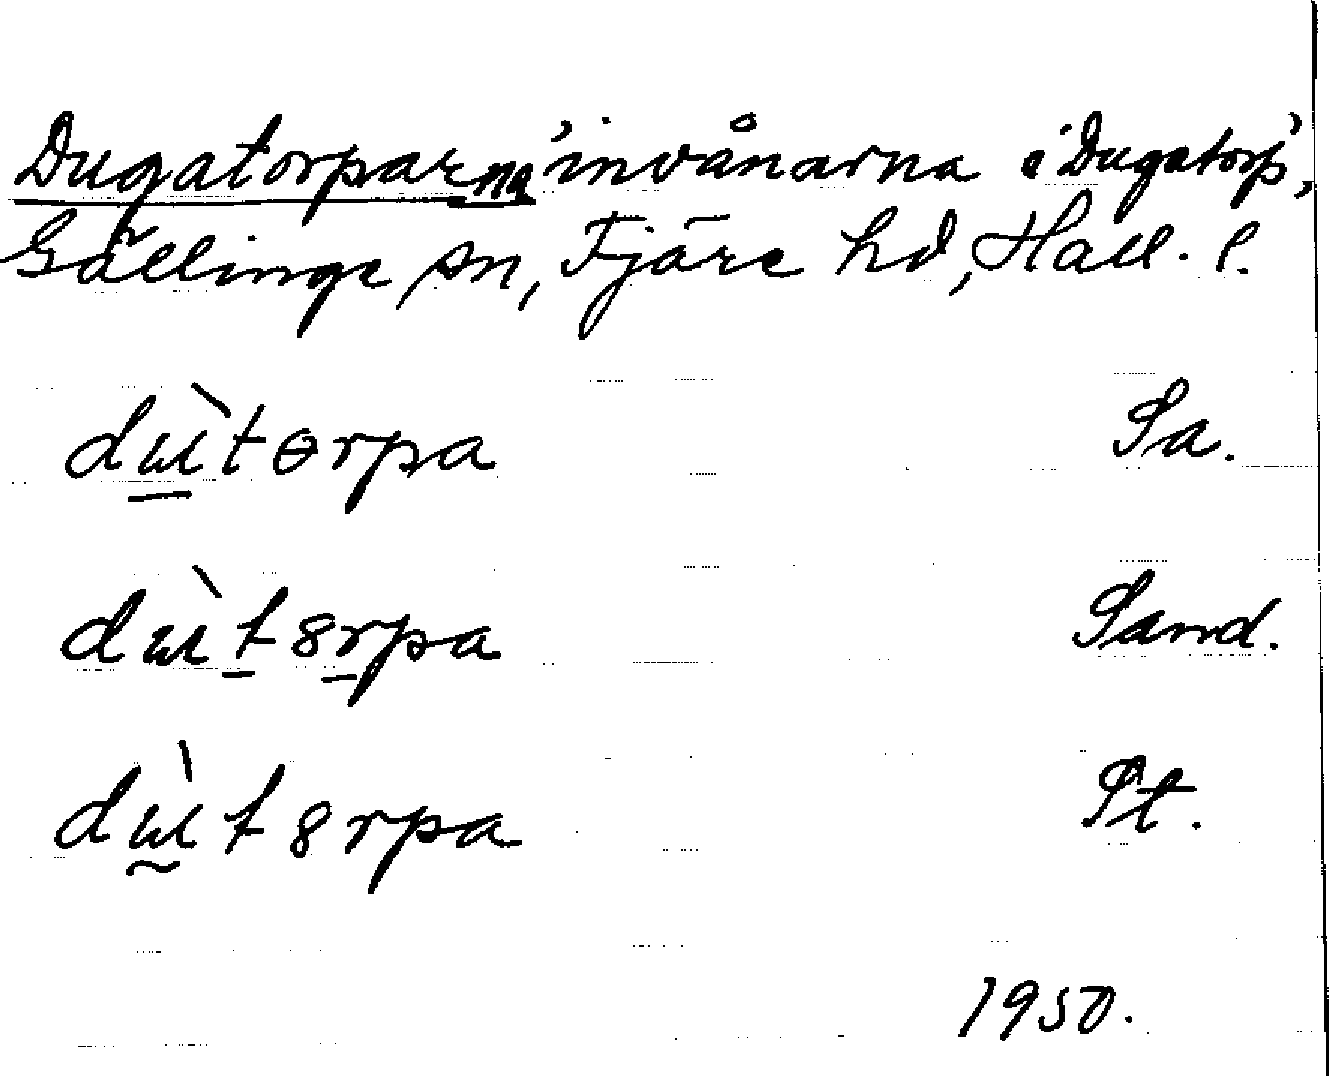 Dugatorparna 'invånarna i Dugatorp',
Gällinge sn, Fjäre hd, Hall. l.
dɯ̀tɵrpa Sa.
dɯ̀t8rpa Sand.
dɯ̀t8rpa St.
1950.